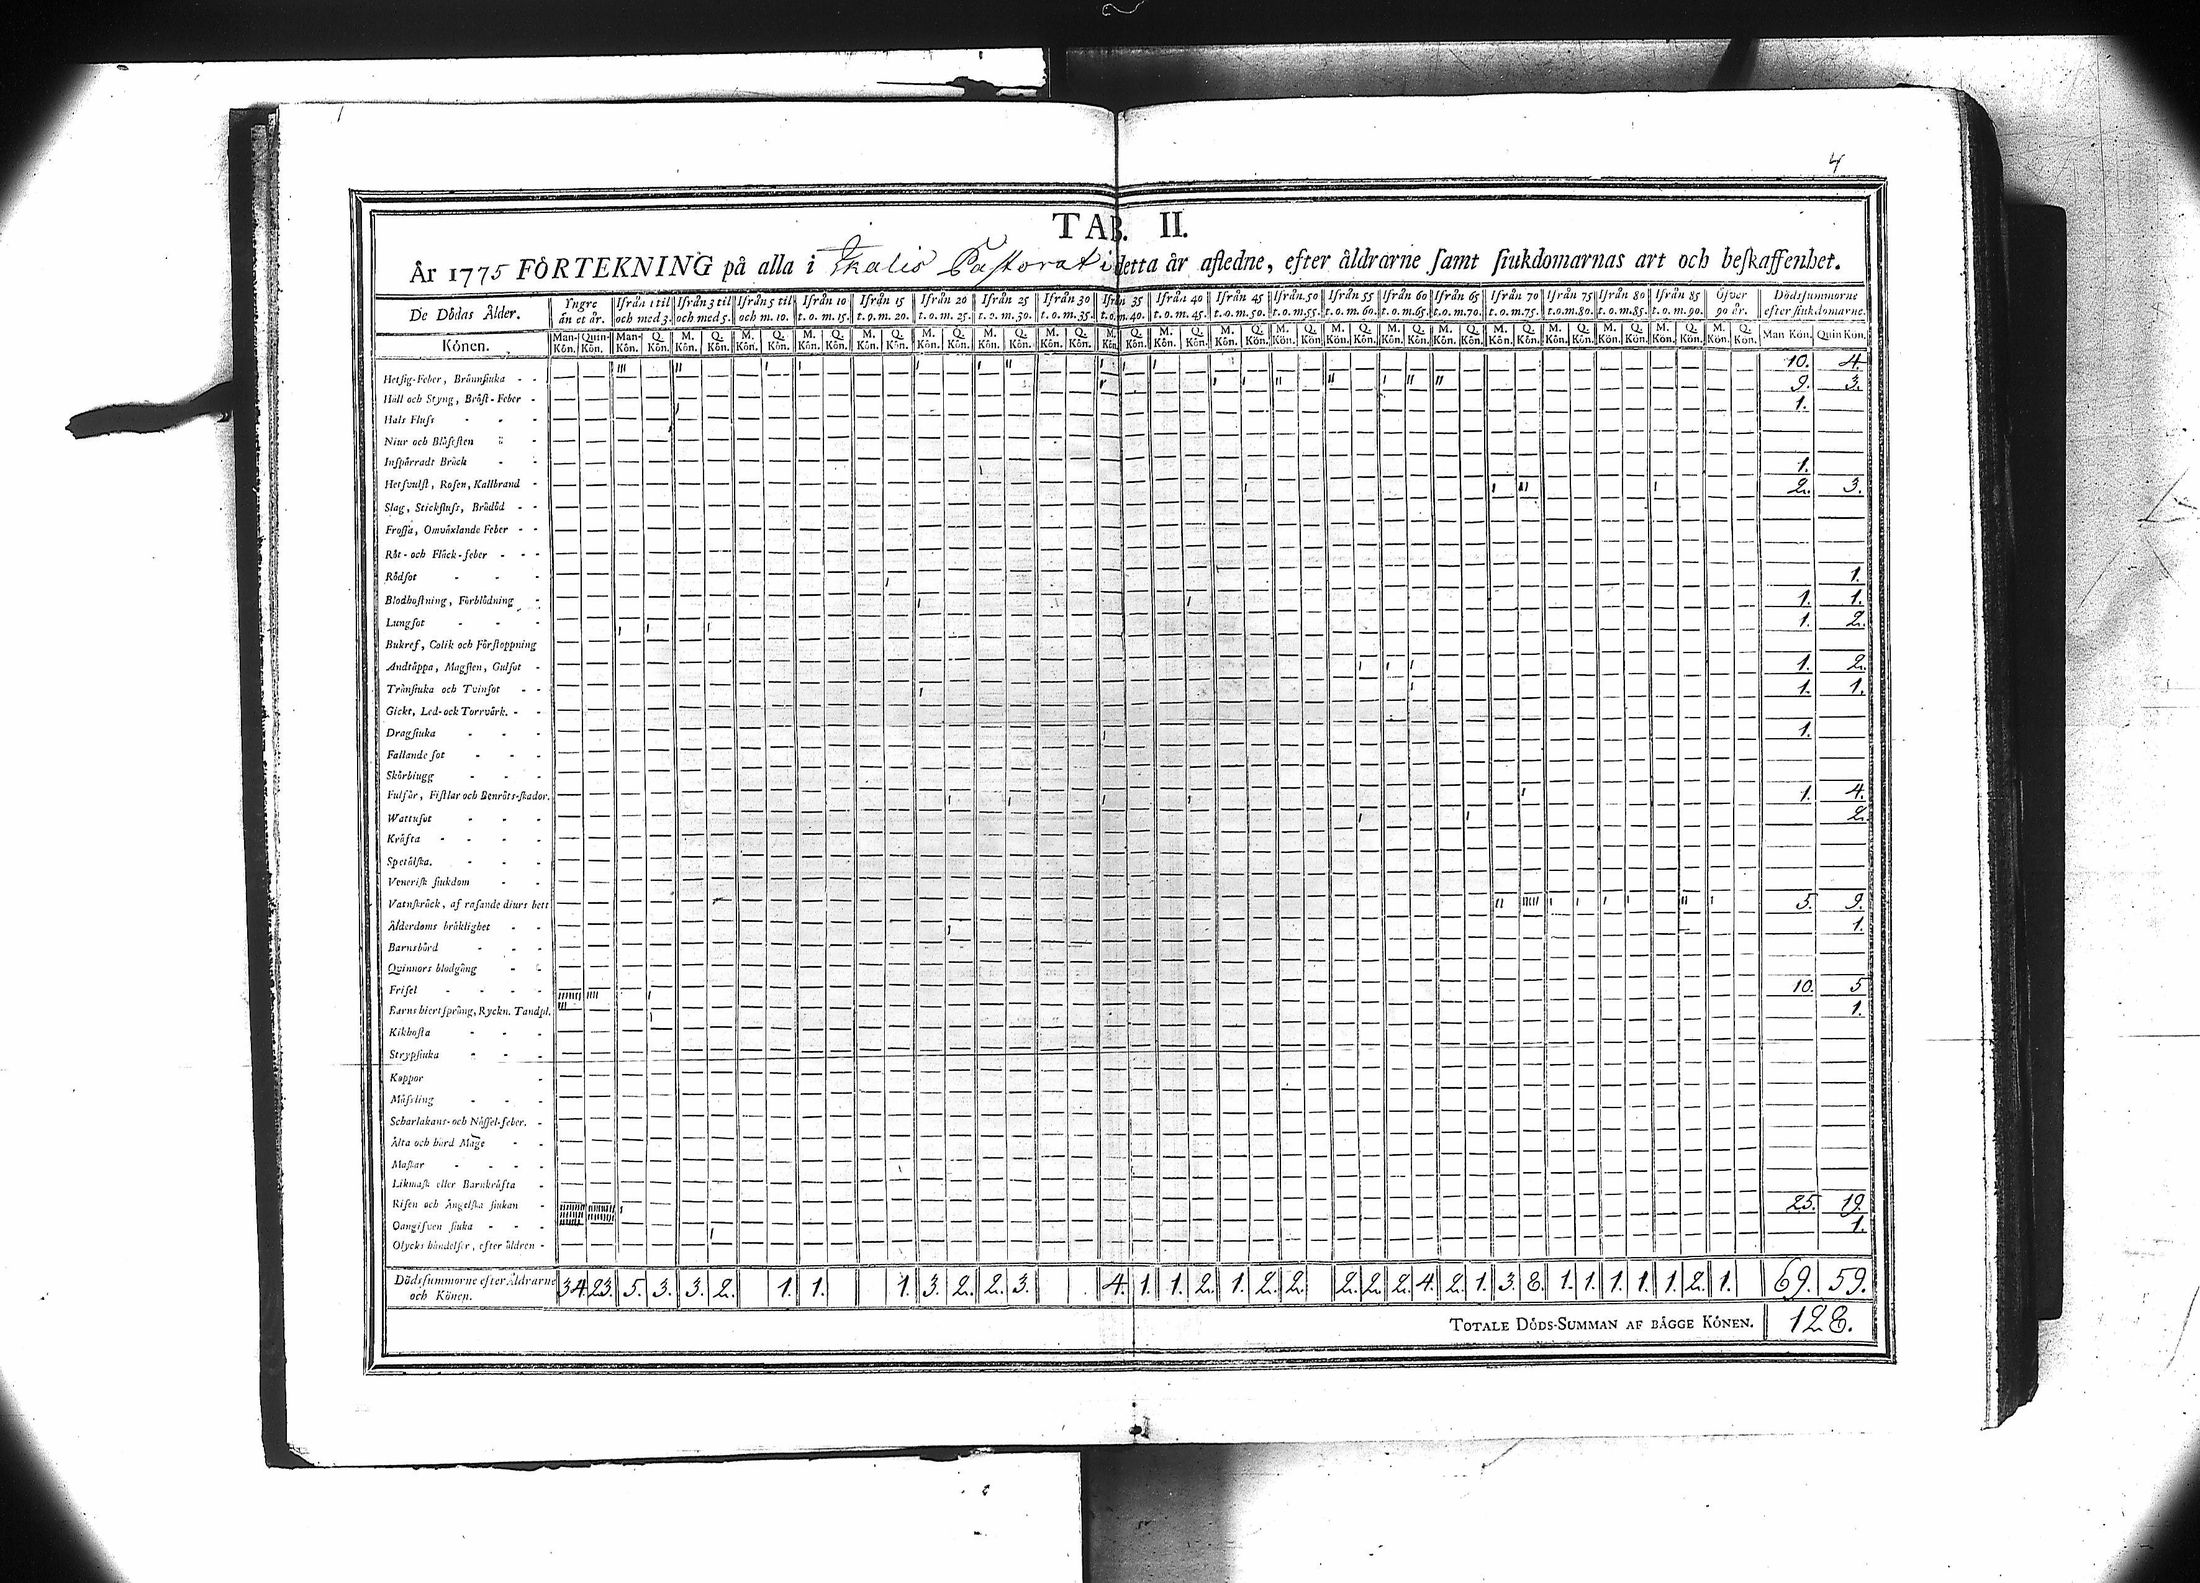 4
TAB. II.
År 1775 FÖRTEKNING på alla i Ikalis Pastorat i detta år afledne, efter åldrarne samt siukdomarnas art och beskaffenhet.
De Dödas Ålder. Yngre än et år. Ifrån 1 til och med 3. Ifrån 3 til och med 5. Ifrån 5 til och m. 10. Ifrån 10 t. o. m. 15. Ifrån 15 t. o. m. 20. Ifrån 20 t. o. m. 25. Ifrån 25 t. o. m. 30. Ifrån 30 t. o. m. 35. Ifrån 35 t. o. m. 40. Ifrån 40 t. o. m. 45. Ifrån 45 t. o. m. 50. Ifrån 50 t. o. m. 55. Ifrån 55 t. o. m. 60. Ifrån 60 t. o. m. 65. Ifrån 65 t. o. m. 70. Ifrån 70 t. o. m. 75. Ifrån 75 t. o. m. 80. Ifrån 80 t. o. m. 85. Ifrån 85 t. o. m. 90. Öfver 90 år. Dödssummorne efter siukdomarne.
Könen. Man-Kön. Quin-Kön. Man-Kön. Q. Kön. M. Kön. Q. Kön. M. Kön. Q. Kön. M. Kön. Q. Kön. M. Kön. Q. Kön. M. Kön. Q. Kön. M. Kön. Q. Kön. M. Kön. Q. Kön. M. Kön. Q. Kön. M. Kön. Q. Kön. M. Kön. Q. Kön. M. Kön. Q. Kön. M. Kön. Q. Kön. M. Kön. Q. Kön. M. Kön. Q. Kön. M. Kön. Q. Kön. M. Kön. Q. Kön. M. Kön. Q. Kön. M. Kön. Q. Kön. M. Kön. Q. Kön. Man Kön. Quin Kön.
Hetsig-Feber, Brännsiuka 10. 4.
Håll och Styng, Bröst-Feber 9. 3.
Hals Fluss 1.
Niur och Blåsesten
Inspärradt Bråck
Hetsvulst, Rosen, Kallbrand 1.
Slag, Stickfluss, Brådöd 2. 3.
Frossa, Omväxlande Feber
Röt- och Fläck-feber
Rödsot
Blodhostning, Förblödning 1.
Lungsot 1. 1.
Bukref, Colik och Förstoppning 1. 2.
Andtäppa, Magsten, Gulsot
Trånsiuka och Tvinsot 1. 2.
Gickt, Led- ock Torrvärk. 1. 1.
Dragsiuka
Fallande sot 1.
Skörbiugg
Fulsår, Fistlar och Benröts-skador.
Wattusot 1. 4.
Kräfta 2.
Spetälska.
Venerisk siukdom
Vatnskräck, af rasande diurs bett
Ålderdoms bräklighet 5. 9.
Barnsbörd 1.
Quinnors blodgång
Frisel
Barns hiertsprång, Ryckn. Tandpl. 10. 5
Kikhosta 1.
Strypsiuka
Koppor
Mässling
Scharlakans- och Nässel-feber.
Älta och hård Mage
Maskar
Likmask eller Barnkräfta
Risen och Ängelska siukan
Oangifven siuka 25. 19.
Olycks händelser, efter åldren 1.
Dödssummorne efter Åldrarne och Könen. 34. 23. 5. 3. 3. 2. 1. 1. 1. 3. 2. 2. 3. 4. 1. 1. 2. 1. 2. 2. 2. 2. 2. 4. 2. 1. 3. 8. 1. 1. 1. 1. 1. 2. 1. 69. 59.
TOTALE DÖDS-SUMMAN AF BÅGGE KÖNEN. 128.